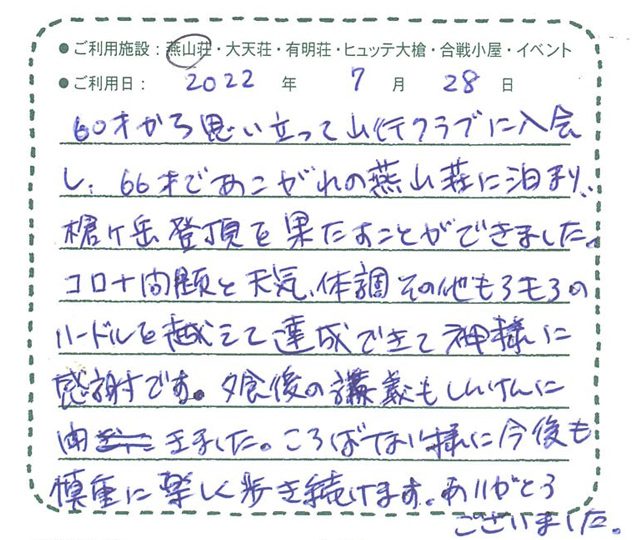 ●ご利用施設：燕山荘・大天荘・有明荘・ヒュッテ大槍・合戦小屋・イベント
●ご利用日：2022 年 7 月 28 日
60才から思い立って山行クラブに入会
し、66才であこがれの燕山荘に泊まり、
槍ヶ岳登頂を果たすことができました。
コロナ問題と天気、体調その他もろもろの
ハードルを越えて達成できて神様に
感謝です。夕食後の講義もしんけんに
聞きました。ころばない様に今後も
慎重に楽しく歩き続けます。ありがとう
ございました。